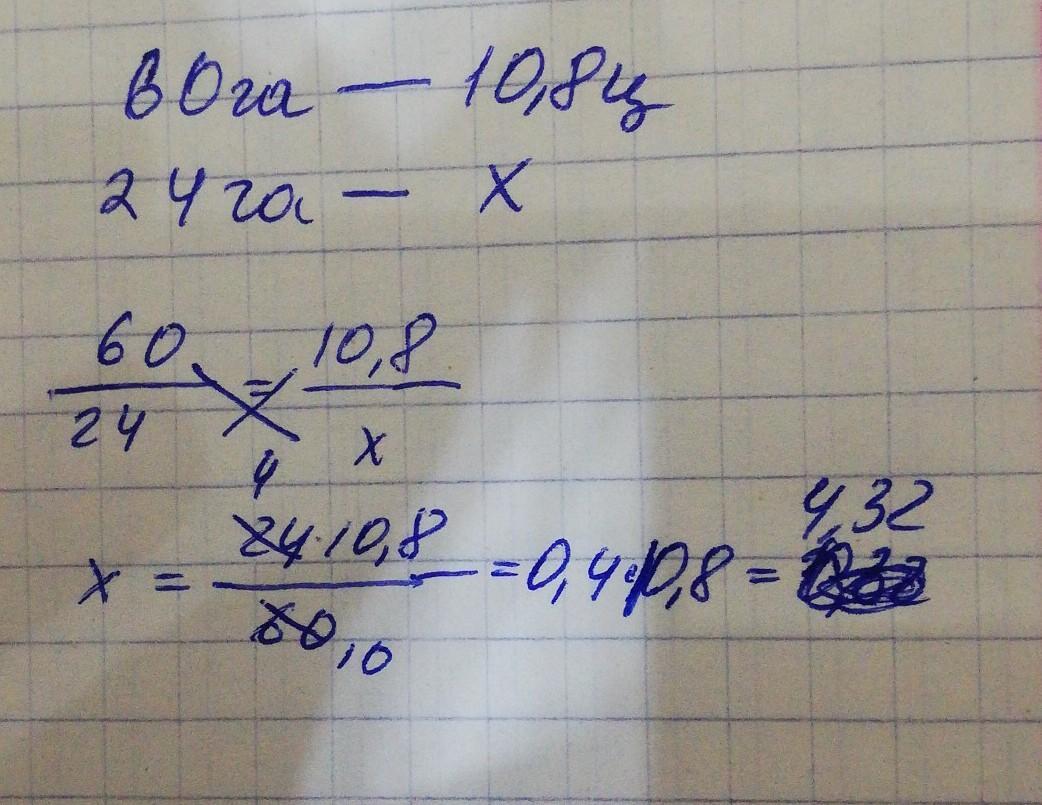 60га — 10,8ц
24га — X
60/24 = 10,8/x
x = 24·10,8/60 = 0,4·10,8 = 4,32
4
10